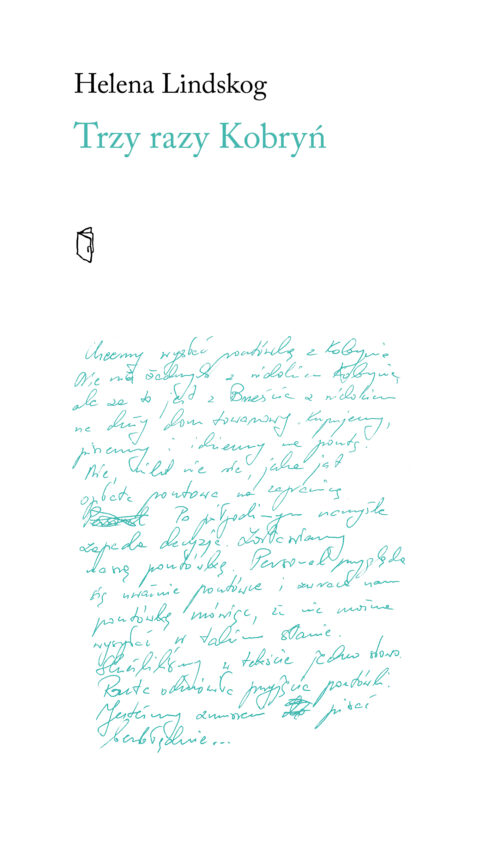 Helena Lindskog
Trzy razy Kobryń
Chcemy wysłać pocztówkę z Kobrynia
Nie ma żadnych z widokiem Kobrynia,
ale za to jest z Brześcia z widokiem
na duży dom towarowy. Kupujemy,
piszemy i idziemy na pocztę.
Nie, nikt nie wie, jaka jest
opłata pocztowa za granicę
Po półgodzinnym namyśle
zapada decyzja. Zostawiamy
naszą pocztówkę. Personel przygląda
się uważnie pocztówce i zwraca nam
pocztówkę mówiąc, że nie można
wysłać w takim stanie.
Skreśliliśmy w tekście jedno słowo.
Poczta odmówiła przyjęcia pocztówki.
Jesteśmy zmuszeni pisać
bezbłędnie...